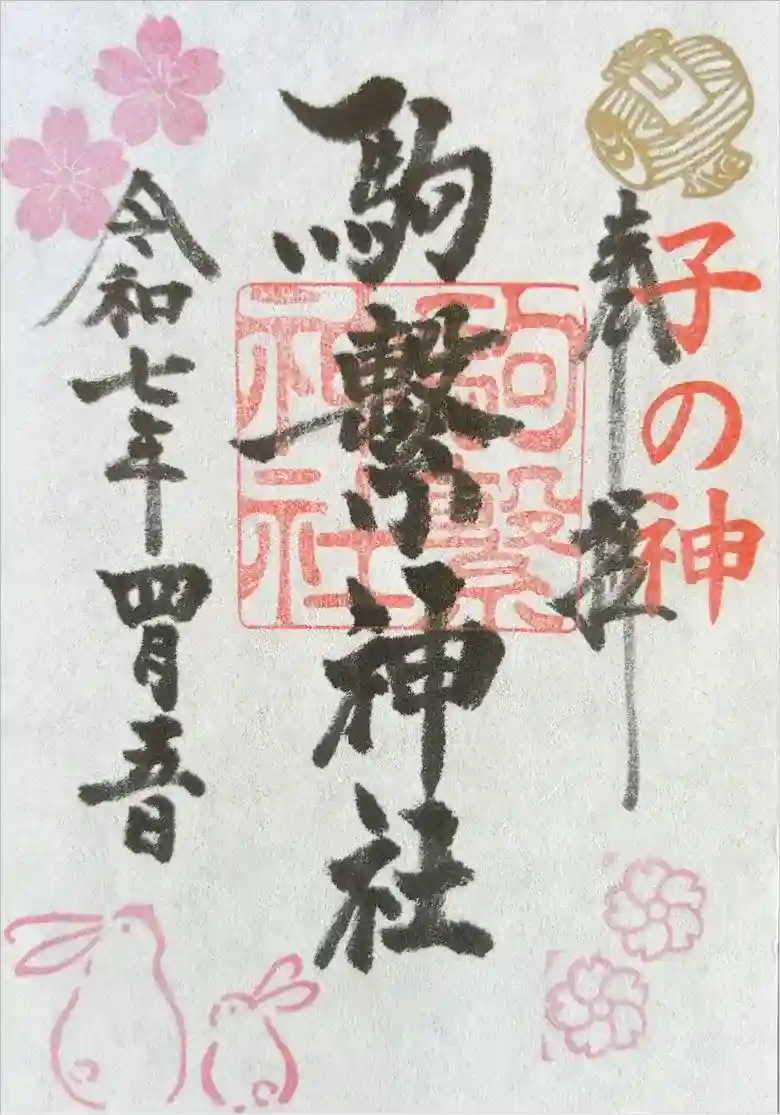 子の神
奉拝
駒繋神社
駒繋神社
令和七年四月五日